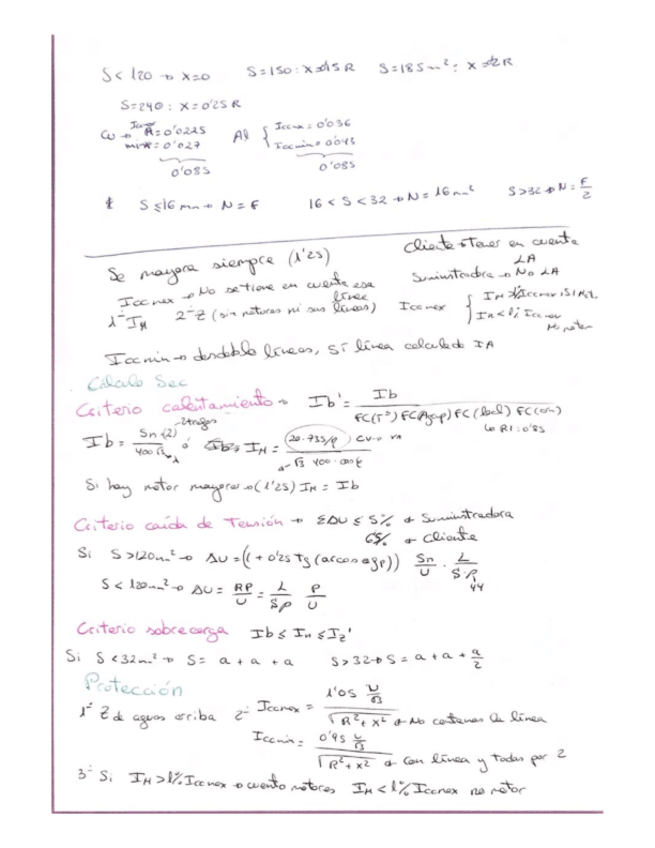 S < 120 → X=0   S=150: X=0'15 R   S=185mm²: X=0'2R
S=240: X=0'25 R
Cu → Iccmax R=0'0225   Al { Iccmax = 0'036
min R=0'027   Iccmin = 0'043
0'085   0'085
S ≤ 16 mm → N = F   16 < S < 32 → N = 16 mm²   S>32 → N = F/2
Cliente → Tener en cuenta
Se mayora siempre (1'25)   LA
Suministradora → No LA
Iccmax → No se tiene en cuenta esa línea
1º I_M   2º Z (sin motores ni sus líneas)   Iccmax { I_M > 1% Iccmax: Si Mot.
I_M < 1% Iccmax No motor
Iccmin → desdoble líneas, SI línea calculado IA
Cálculo Sec
Criterio calentamiento → Ib' = Ib / FC(Tª) FC(Agrup) FC(local) FC(con)
→ R1: 0'85
Ib = Sn (2) / 400√3 ó I_M = (20·735/ρ) CV → / √3 400 · cos φ
Si hay motor mayorar → (1'25) I_M = Ib
Criterio caída de Tensión → ΣΔU ≤ 5% → Suministradora
6'5% → Cliente
Si S>120mm² → ΔU = (1 + 0'25 Tg (arcos φ)) Sn/U · L/S·ρ
44
S < 120mm² → ΔU = RP/U = L/Sρ P/U
Criterio sobrecarga Ib ≤ In ≤ Iz'
Si S < 32mm² → S = a + a + a   S > 32 → S = a + a + a/2
Protección
1º Z de aguas arriba   2º Iccmax = 1'05 U/√3 / √R² + X² → No contamos la línea
Iccmin = 0'95 U/√3 / √R² + X² → Con línea y todas por 2
3º Si I_M > 1% Iccmax → cuento motores   I_M < 1% Iccmax no motor